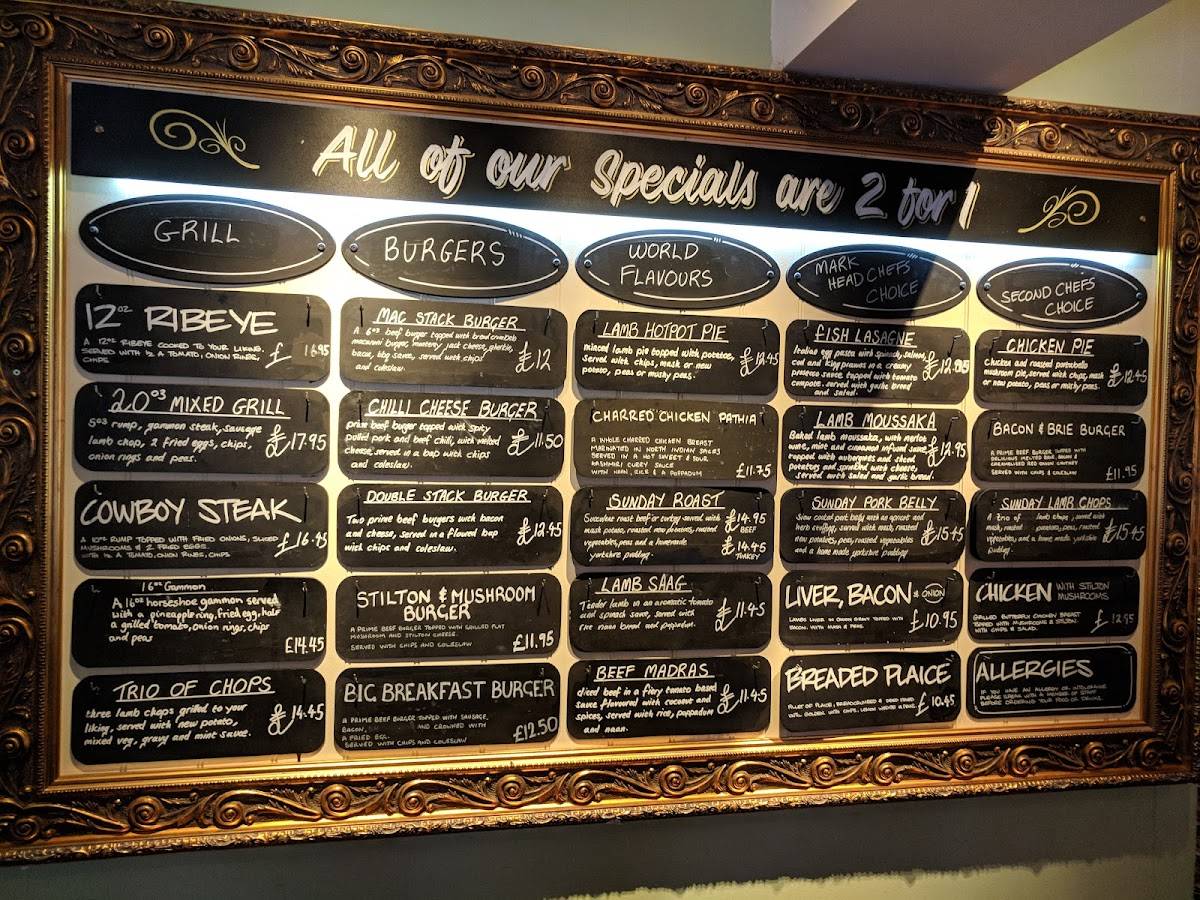 All of our Specials are 2 for 1
GRILL
12oz RIBEYE
A 12oz RIBEYE COOKED TO YOUR LIKING,
SERVED WITH ½ A TOMATO, ONION RINGS,
CHIPS
£ 16.95
20oz MIXED GRILL
5oz rump, gammon steak, sausage
lamb chop, 2 fried eggs, chips,
onion rings and peas.
£17.95
COWBOY STEAK
A 10oz RUMP TOPPED WITH FRIED ONIONS, SLICED
MUSHROOMS & 2 FRIED EGGS.
WITH ½ A TOMATO, ONION RINGS, CHIPS
£16.45
16oz Gammon
A 16oz horseshoe gammon served
with a pineapple ring, fried egg, half
a grilled tomato, onion rings, chips
and peas
£14.45
TRIO OF CHOPS
three lamb chops grilled to your
liking, served with new potato,
mixed veg, gravy and mint sauce.
£14.45
BURGERS
MAC STACK BURGER
A 6oz beef burger topped with breadcrumbed
macaroni burger, monterey jack cheese, gherkin,
bacon, bbq sauce, served with chips
and coleslaw.
£12
CHILLI CHEESE BURGER
prime beef burger topped with spicy
pulled pork and beef chilli, with melted
cheese, served in a bap with chips
and coleslaw.
£11.50
DOUBLE STACK BURGER
Two prime beef burgers with bacon
and cheese, served in a floured bap
with chips and coleslaw.
£12.45
STILTON & MUSHROOM
BURGER
A PRIME BEEF BURGER TOPPED WITH GRILLED FLAT
MUSHROOM AND STILTON CHEESE.
SERVED WITH CHIPS AND COLESLAW
£11.95
BIG BREAKFAST BURGER
A PRIME BEEF BURGER TOPPED WITH SAUSAGE,
BACON, AND CROWNED WITH
A FRIED EGG.
SERVED WITH CHIPS AND COLESLAW
£12.50
WORLD
FLAVOURS
LAMB HOTPOT PIE
minced lamb pie topped with potatoes,
served with chips, mash or new
potato, peas or mushy peas.
£12.45
CHARRED CHICKEN PATHIA
A WHOLE CHARRED CHICKEN BREAST
MARINATED IN NORTH INDIAN SPICES
SERVED IN A HOT SWEET & SOUR
KASHMIRI CURRY SAUCE
WITH NAAN, RICE & A POPPADUM
£11.75
SUNDAY ROAST
Succulent roast beef or turkey served with
mash potato, roasted new potatoes, roasted
vegetables, peas and a homemade
yorkshire pudding.
£14.95
BEEF
£14.45
TURKEY
LAMB SAAG
Tender lamb in an aromatic tomato
and spinach sauce, served with
rice naan bread and poppadum.
£11.45
BEEF MADRAS
diced beef in a fiery tomato based
sauce flavoured with coconut and
spices, served with rice, poppadum
and naan.
£11.45
MARK
HEAD CHEFS
CHOICE
FISH LASAGNE
Italian egg pasta with spinach, salmon,
cod and king prawns in a creamy
sauce topped with tomato
compote. served with garlic bread
and salad.
LAMB MOUSSAKA
Baked lamb moussaka, with merlot
wine, mint and cinnamon infused sauce,
topped with aubergine and sliced
potatoes and sprinkled with cheese,
served with salad and garlic bread.
£12.95
SUNDAY PORK BELLY
Slow cooked pork belly with an apricot and
herb stuffing, served with mash, roasted
new potatoes, peas, roasted vegetables
and a home made yorkshire pudding
£15.45
LIVER, BACON & ONION
LAMBS LIVER IN ONION GRAVY TOPPED WITH
BACON. WITH MASH & PEAS.
£10.95
BREADED PLAICE
FILLET OF PLAICE, BREADCRUMBED & DEEP FRIED
UNTIL GOLDEN WITH CHIPS, LEMON WEDGE & PEAS.
£10.45
SECOND CHEFS
CHOICE
CHICKEN PIE
Chicken and roasted portabello
mushroom pie, served with chips, mash
or new potato, peas or mushy peas.
£12.45
BACON & BRIE BURGER
A PRIME BEEF BURGER TOPPED WITH
DELICIOUS MELTED BRIE, BACON &
CARAMELISED RED ONION CHUTNEY
SERVED WITH CHIPS & COLESLAW
£11.95
SUNDAY LAMB CHOPS
A trio of lamb chops, served with
mash, roasted new potatoes, peas, roasted
vegetables, and a home made yorkshire
pudding.
£15.45
CHICKEN WITH STILTON
MUSHROOMS
GRILLED BUTTERFLY CHICKEN BREAST
TOPPED WITH MUSHROOMS & STILTON.
WITH CHIPS & SALAD.
£ 12.95
ALLERGIES
IF YOU HAVE AN ALLERGY OR INTOLERANCE
PLEASE SPEAK WITH A MEMBER OF STAFF
BEFORE ORDERING YOUR FOOD OR DRINKS.